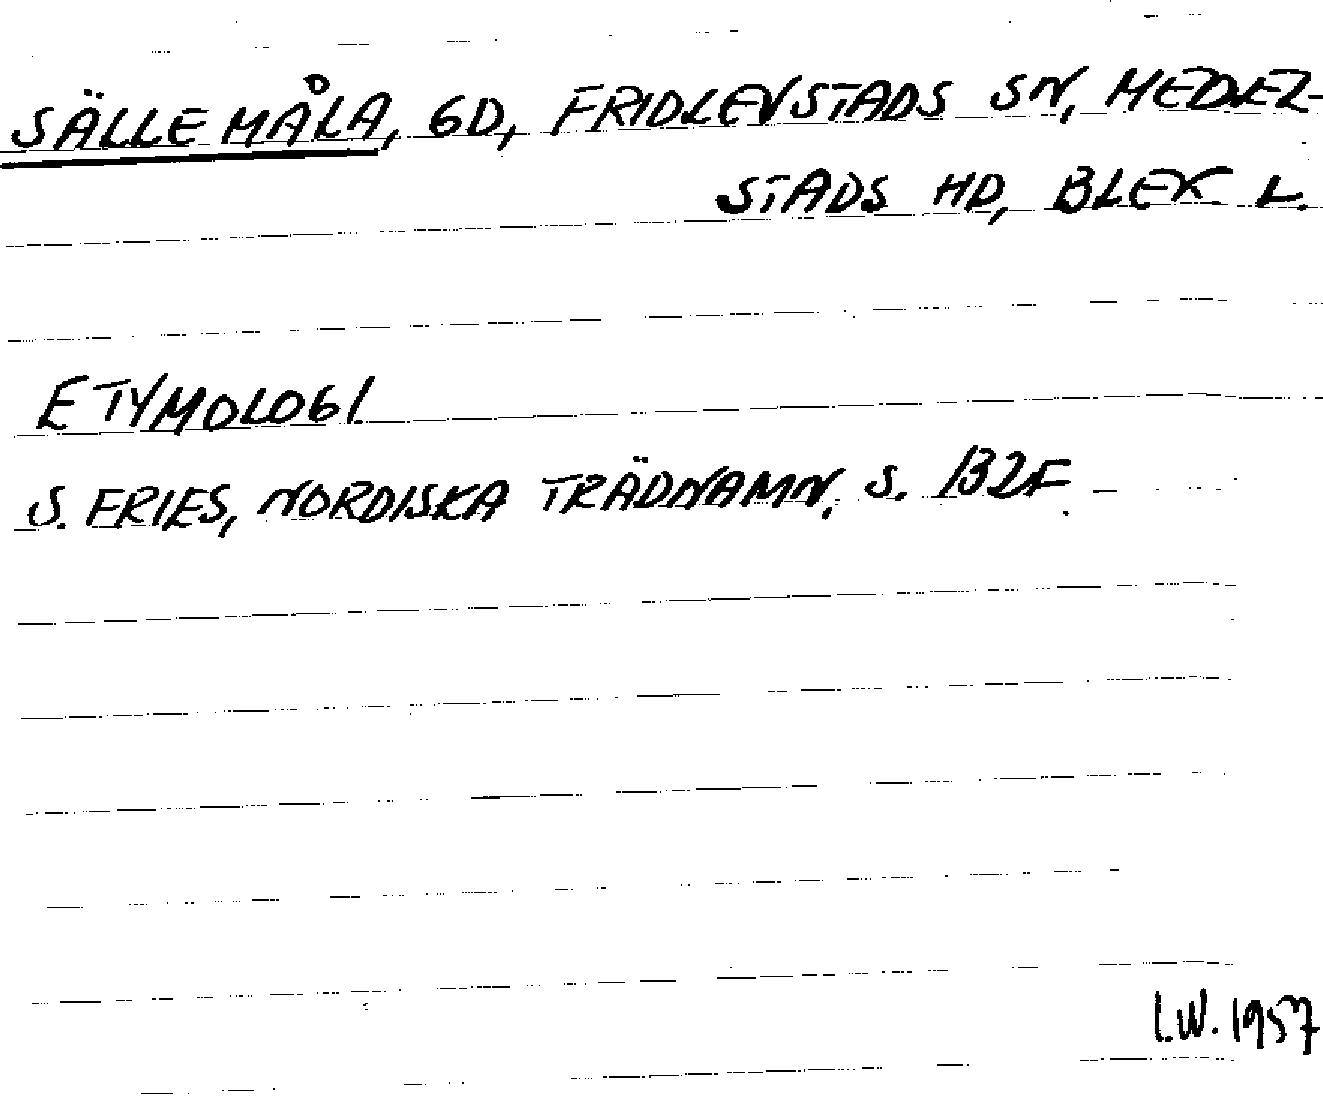 SÄLLEMÅLA, GD, FRIDLEVSTADS SN, MEDEL-
STADS HD, BLEK. L.
ETYMOLOGI
S. FRIES, NORDISKA TRÄDNAMN, S. 132F.
I.W. 1957